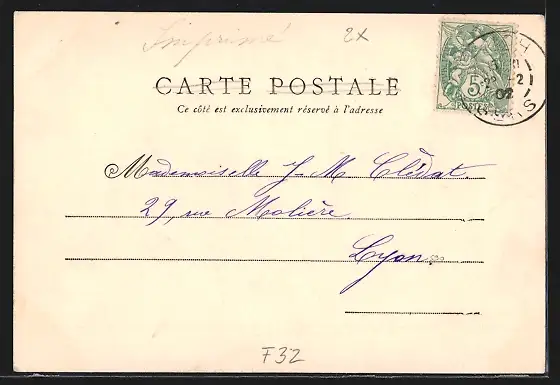 Imprimé
2x
CARTE POSTALE
Ce côté est exclusivement réservé à l'adresse
5
POSTES
2
02
Mademoiselle J-M Clédat.
29, rue Molière,
Lyon
F32